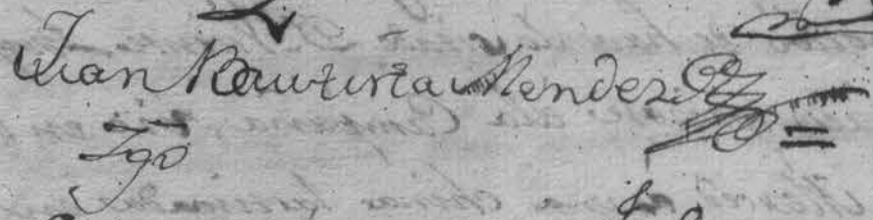 Juan Bautista Mendez
Tgo